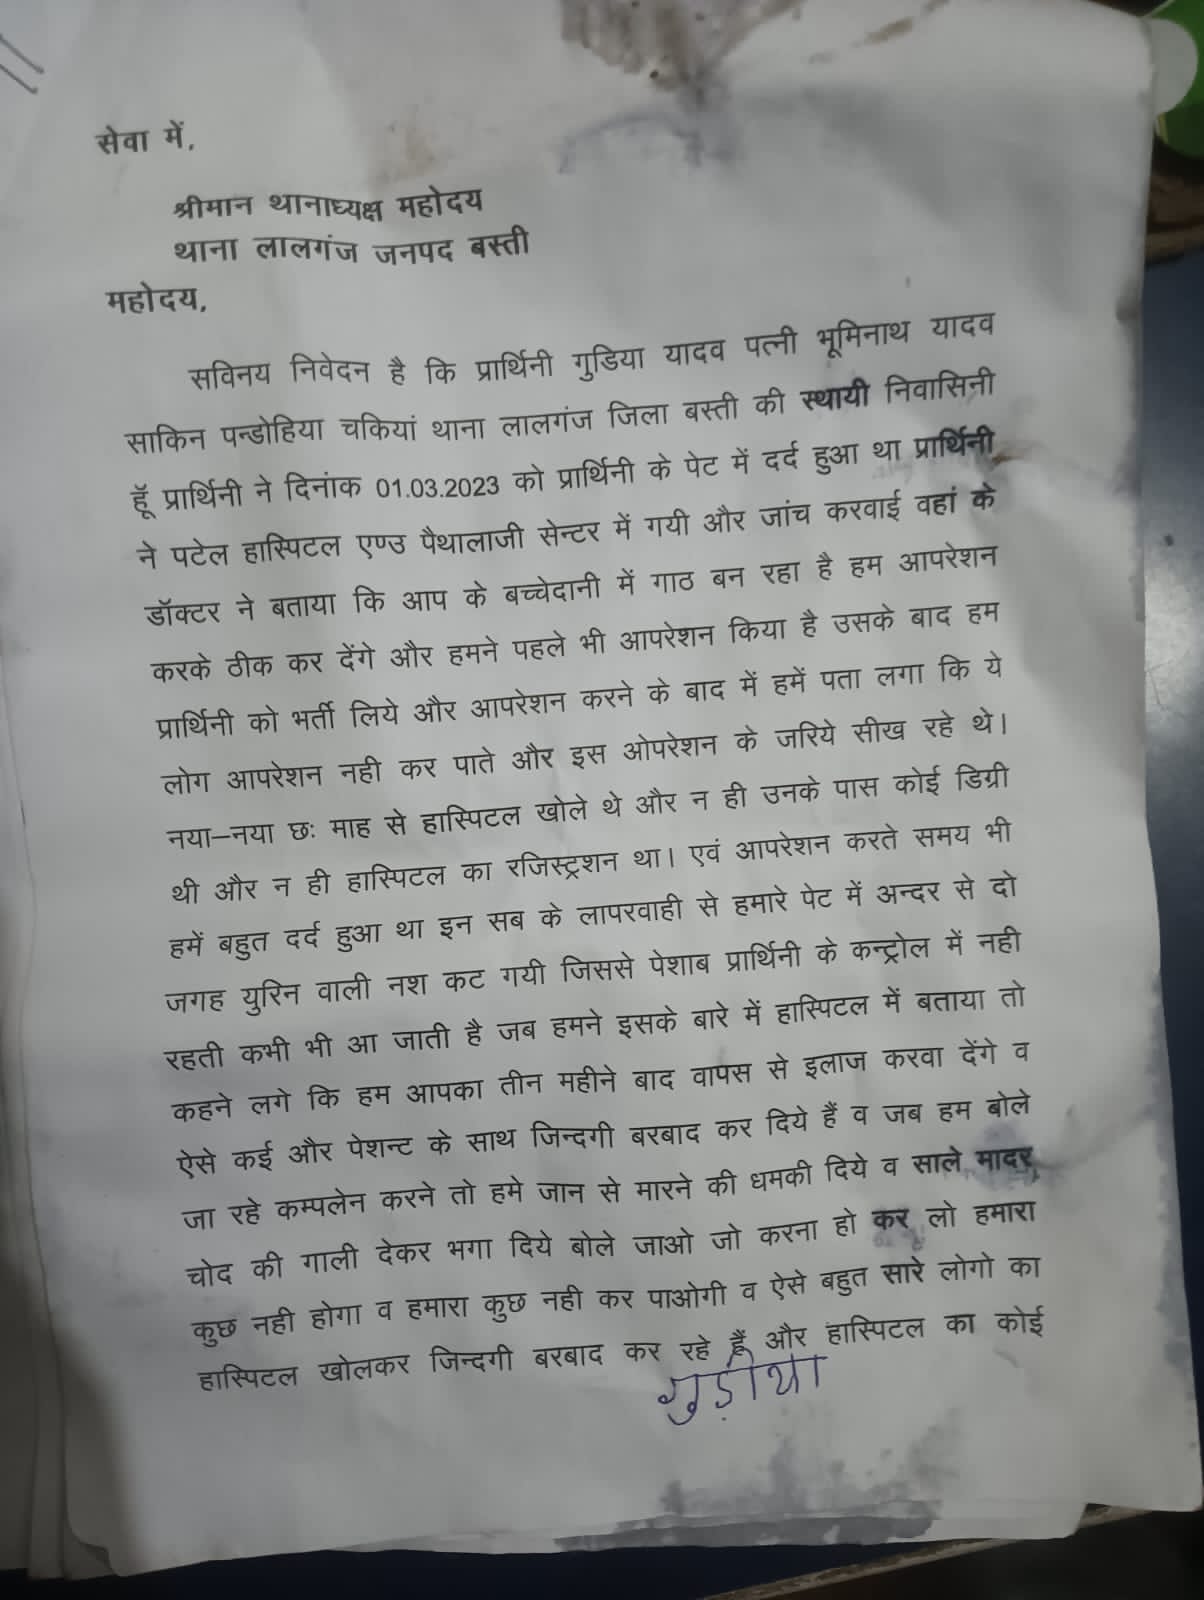 सेवा में,
श्रीमान थानाध्यक्ष महोदय
थाना लालगंज जनपद बस्ती
महोदय,
सविनय निवेदन है कि प्रार्थिनी गुडिया यादव पत्नी भूमिनाथ यादव
साकिन पन्डोहिया चकियां थाना लालगंज जिला बस्ती की स्थायी निवासिनी
हूॅ प्रार्थिनी ने दिनांक 01.03.2023 को प्रार्थिनी के पेट में दर्द हुआ था प्रार्थिनी
ने पटेल हास्पिटल एण्उ पैथालाजी सेन्टर में गयी और जांच करवाई वहां के
डॉक्टर ने बताया कि आप के बच्चेदानी में गाठ बन रहा है हम आपरेशन
करके ठीक कर देंगे और हमने पहले भी आपरेशन किया है उसके बाद हम
प्रार्थिनी को भर्ती लिये और आपरेशन करने के बाद में हमें पता लगा कि ये
लोग आपरेशन नही कर पाते और इस ओपरेशन के जरिये सीख रहे थे।
नया–नया छः माह से हास्पिटल खोले थे और न ही उनके पास कोई डिग्री
थी और न ही हास्पिटल का रजिस्ट्रशन था। एवं आपरेशन करते समय भी
हमें बहुत दर्द हुआ था इन सब के लापरवाही से हमारे पेट में अन्दर से दो
जगह युरिन वाली नश कट गयी जिससे पेशाब प्रार्थिनी के कन्ट्रोल में नही
रहती कभी भी आ जाती है जब हमने इसके बारे में हास्पिटल में बताया तो
कहने लगे कि हम आपका तीन महीने बाद वापस से इलाज करवा देंगे व
ऐसे कई और पेशन्ट के साथ जिन्दगी बरबाद कर दिये हैं व जब हम बोले
जा रहे कम्पलेन करने तो हमे जान से मारने की धमकी दिये व साले मादर
चोद की गाली देकर भगा दिये बोले जाओ जो करना हो कर लो हमारा
कुछ नही होगा व हमारा कुछ नही कर पाओगी व ऐसे बहुत सारे लोगो का
हास्पिटल खोलकर जिन्दगी बरबाद कर रहे हैं और हास्पिटल का कोई
गुड़ीया